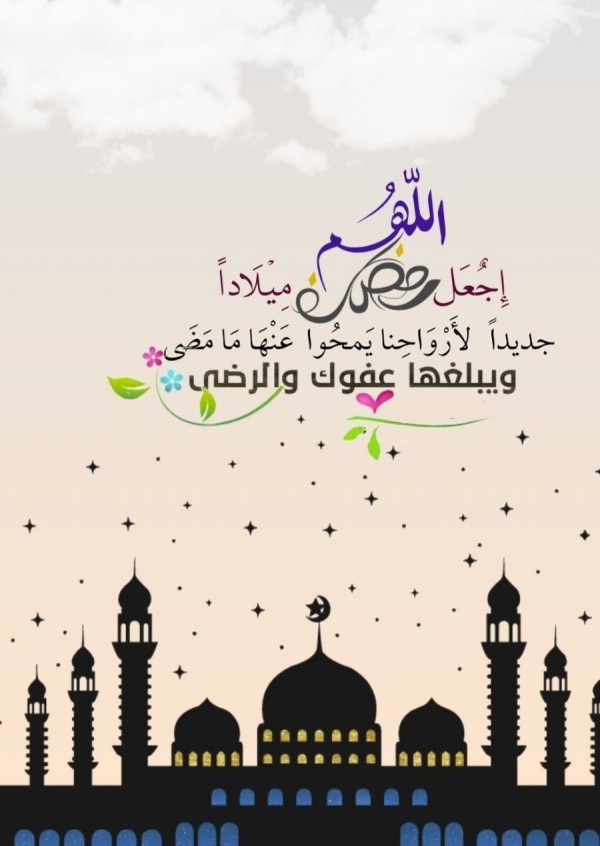 اللّهُم
إِجْعَل رمضان مِيْلَاداً
جديداً لأَرْوَاحِنا يَمحُوا عَنْهَا مَا مَضَى
ويبلغها عفوك والرضى